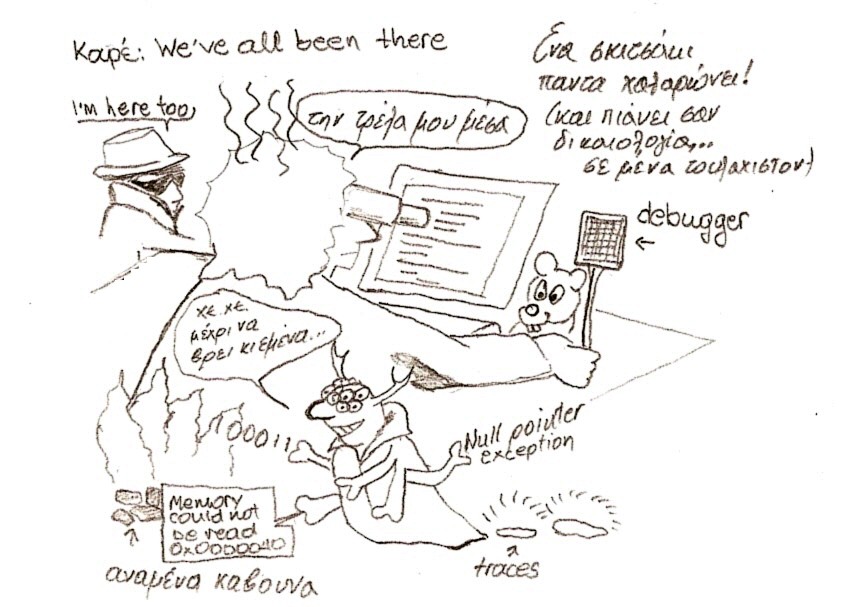 Καρέ: We've all been there
Ένα σκιτσάκι
πάντα χαλαρώνει!
(και πιάνει σαν
δικαιολογία...
σε μένα τουλάχιστον)
I'm here too
την τρέλα μου μέσα
debugger
χε χε.
μέχρι να
βρει κι εμένα...
10001,
Null pointer
exception
Memory
could not
be read
0x0000040
αναμένα κάβουνα
traces